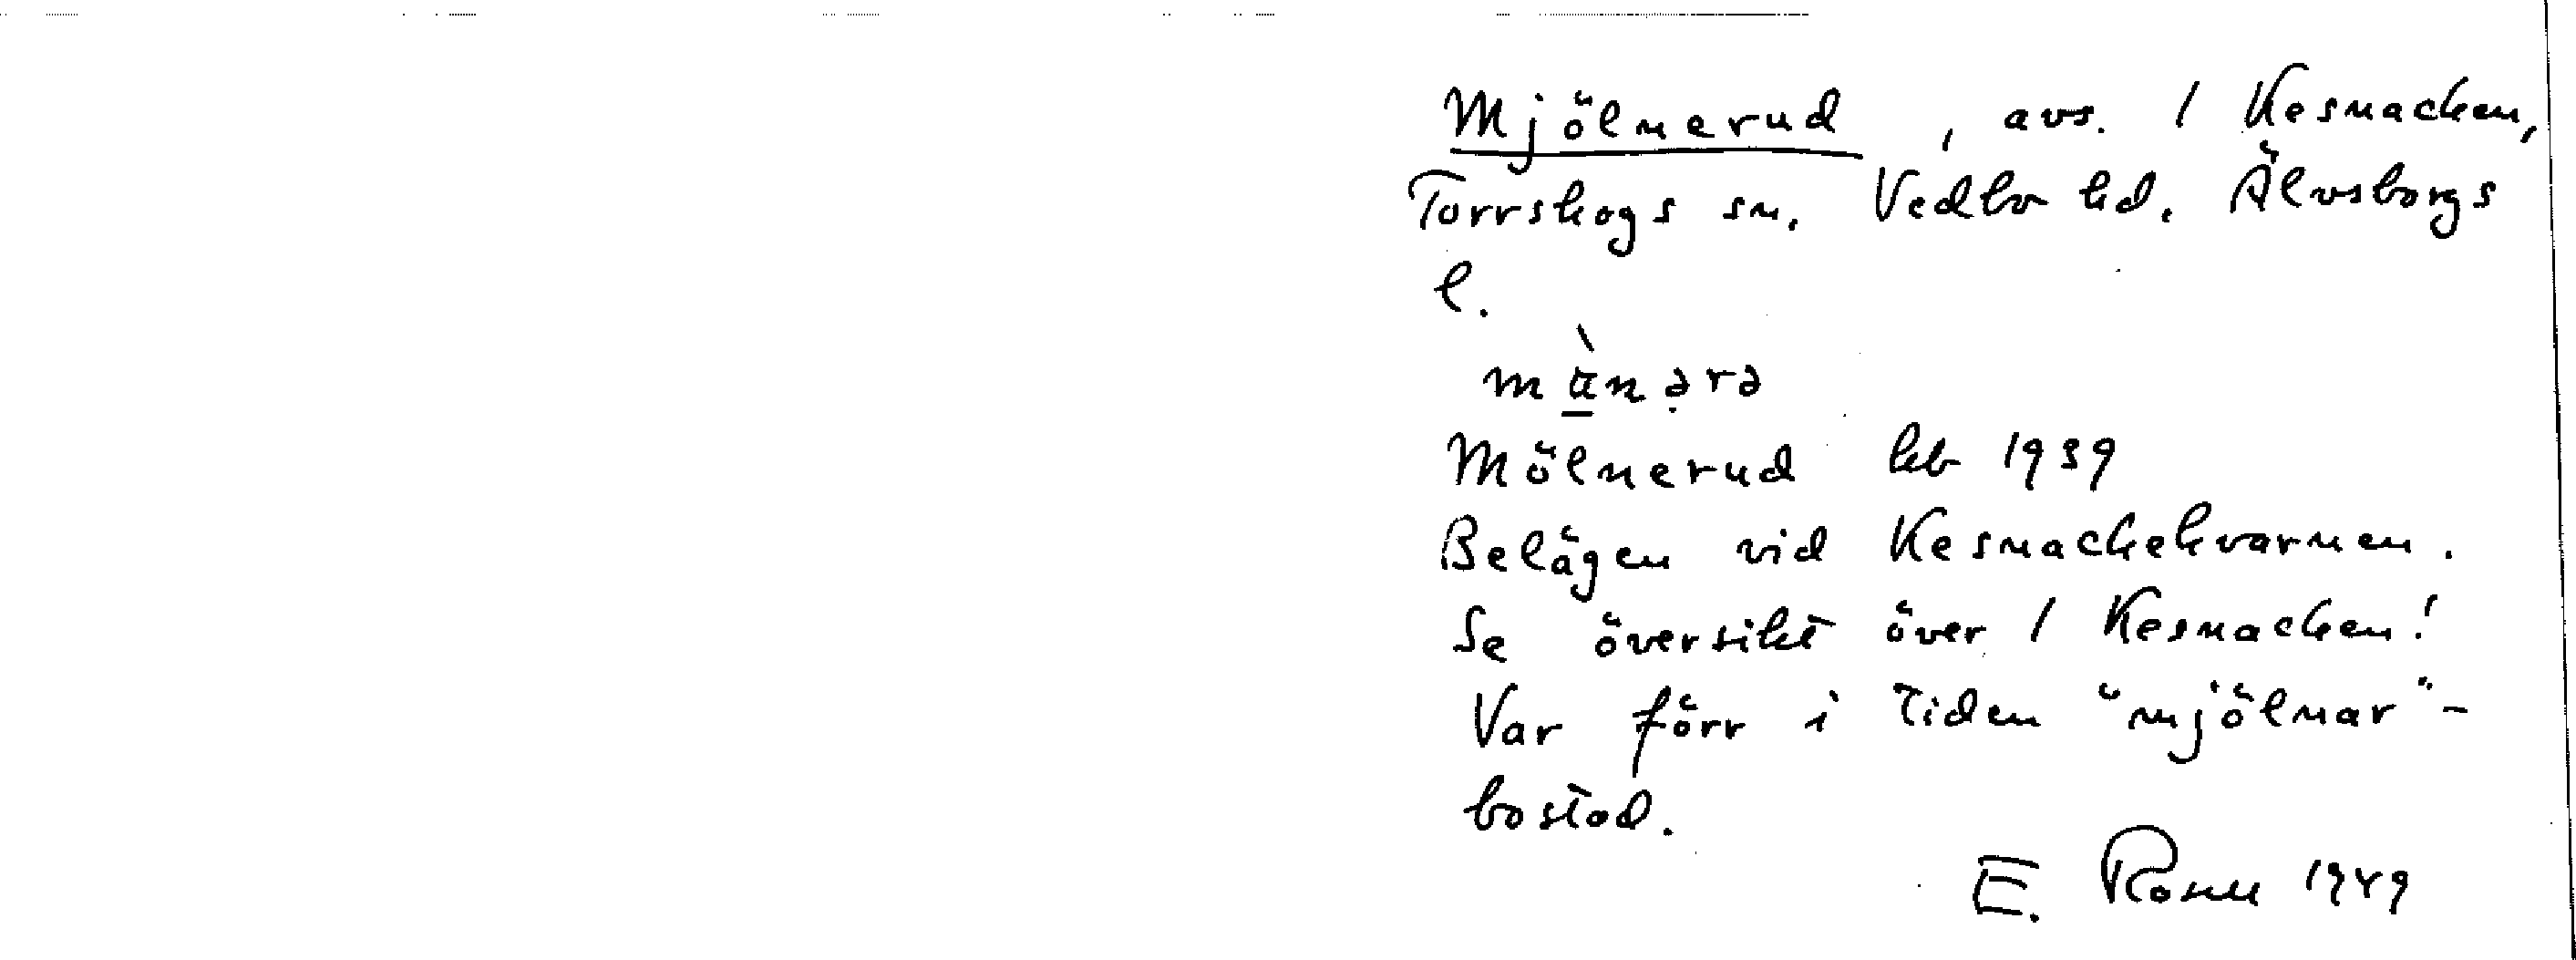 Mjölnerud, avs. 1 Kesnacken,
Torrskogs sn. Vedbo hd. Älvsborgs
l.
Mölnerud kb 1939
Belägen vid Kesnackekvarnen.
Se översikt över 1 Kesnacken!
Var förr i tiden "mjölnar"-
bostad.
E. 1949